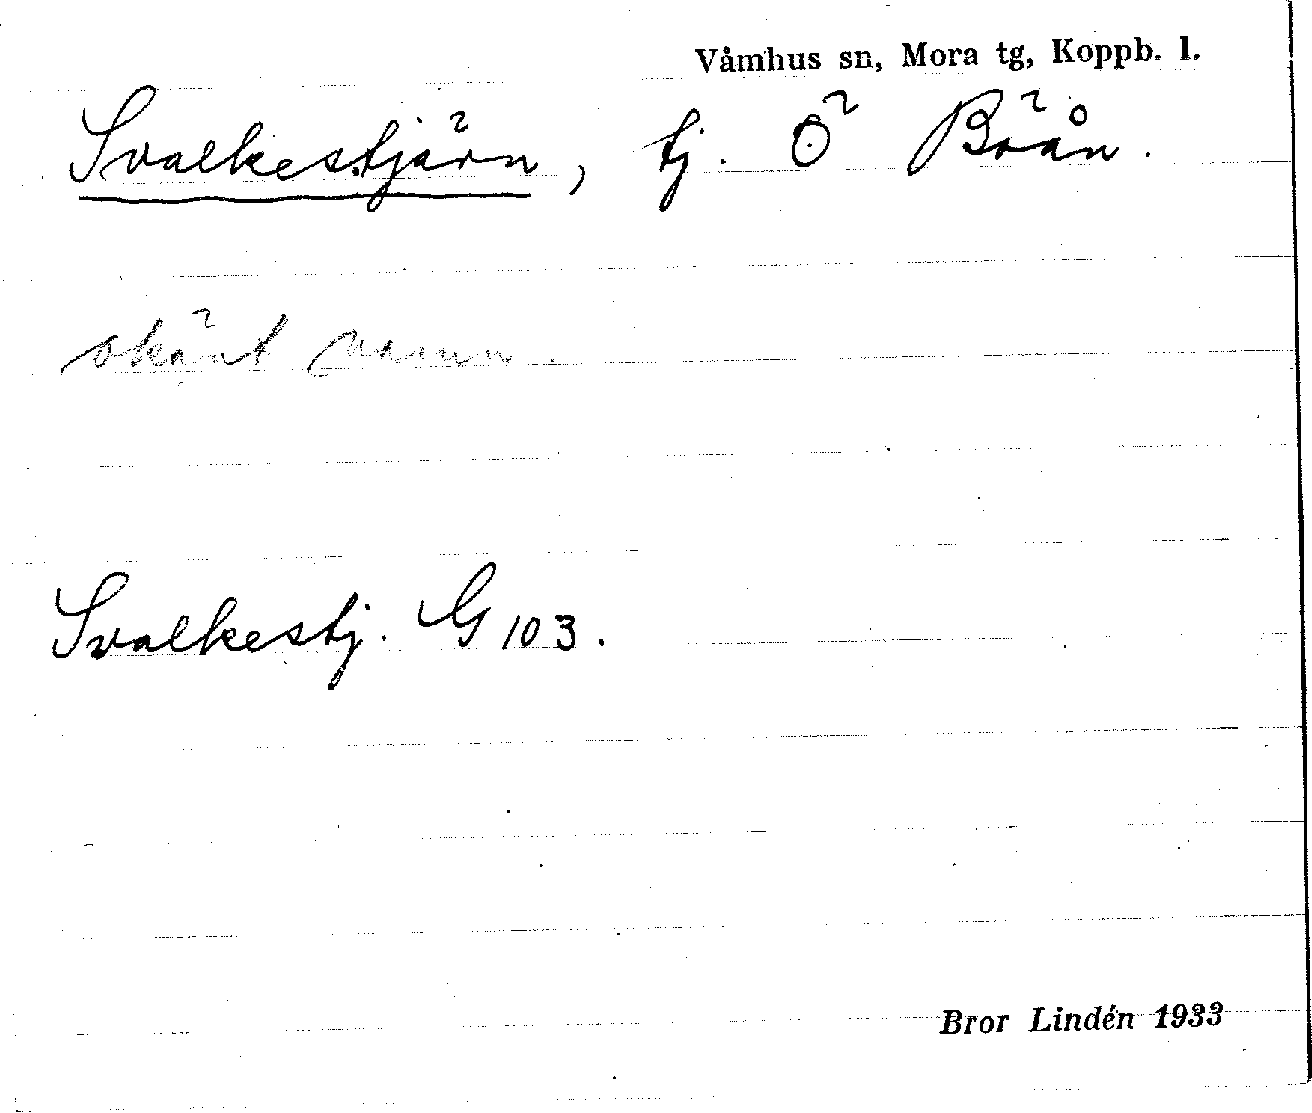 Våmhus sn, Mora tg, Koppb. l.
Svalkestjärn, tj. Ö Böån.
okänt namn.
Svalkestj. G 103.
Bror Lindén 1933